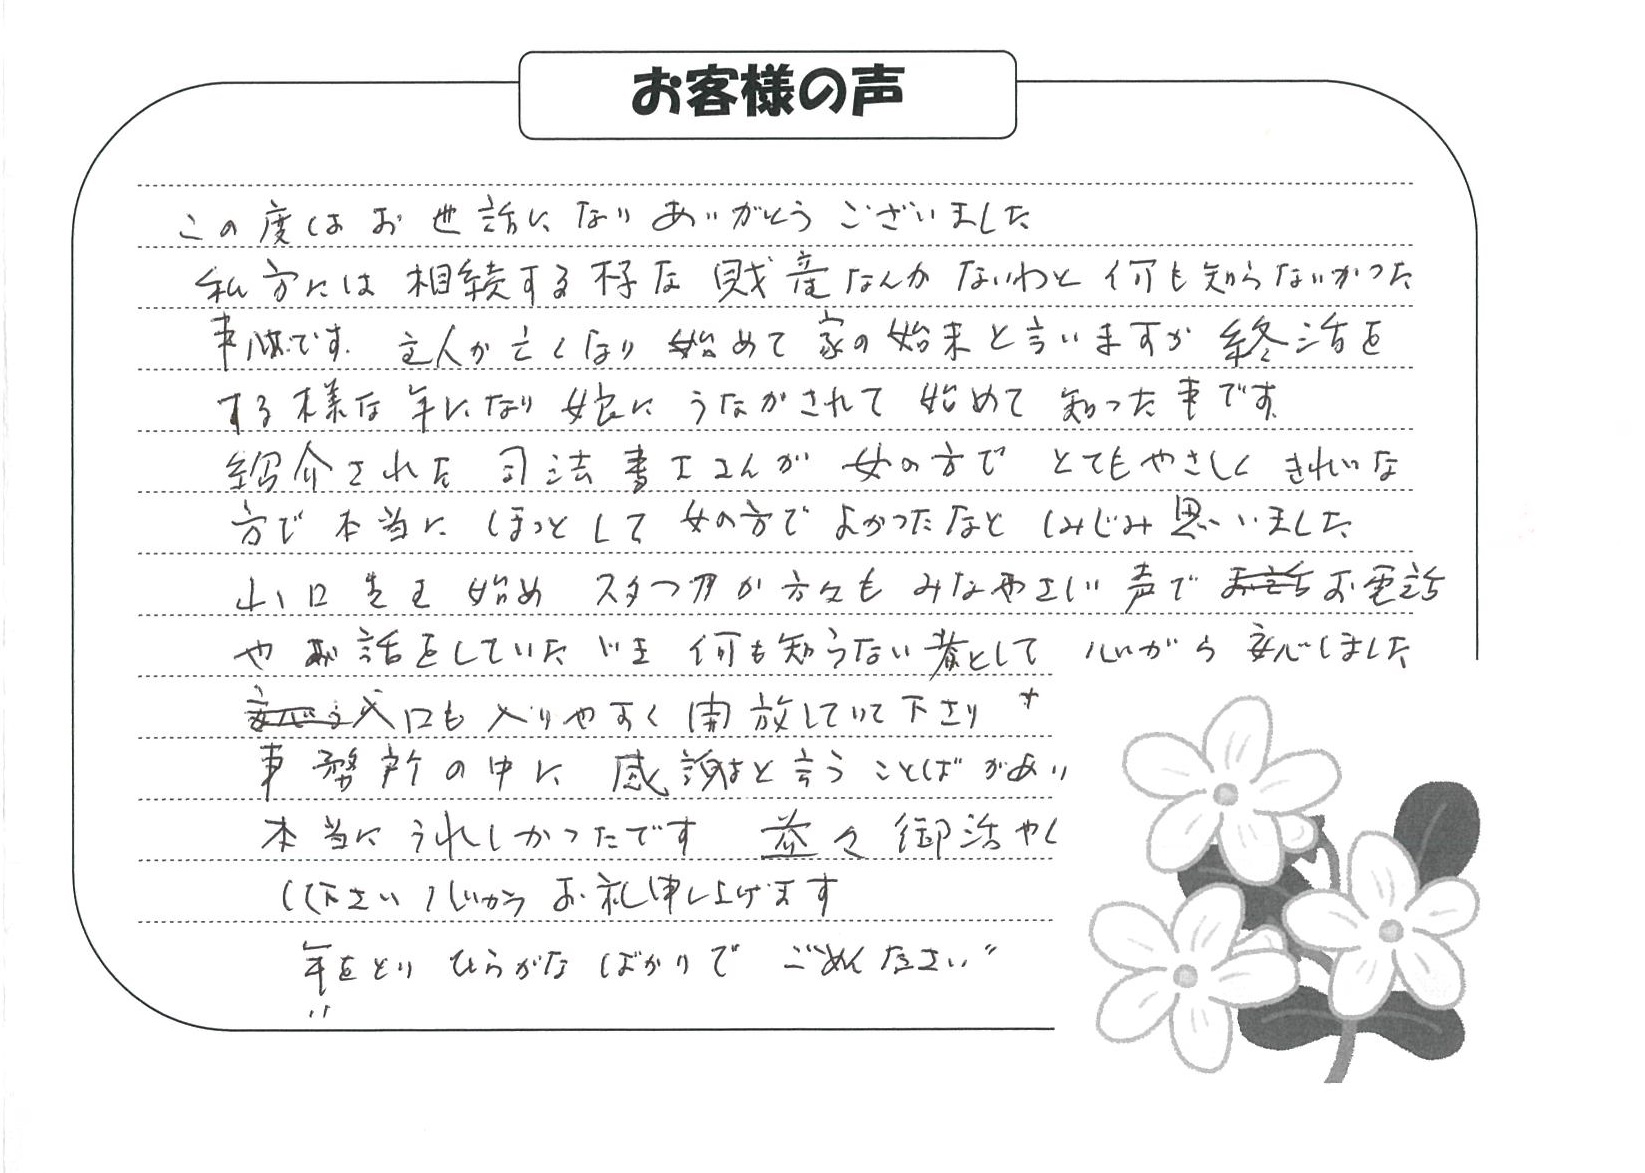 お客様の声
この度は お世話に なり ありがとう ございました
私方には 相続する様な 財産なんか ないわと 何も知らないかった
事です. 主人が亡くなり 始めて 家の始末と言いますが 終活を
する様な年になり 娘に うながされて 始めて 知った事です.
紹介された 司法書士さんが 女の方で とてもやさしく きれいな
方で 本当に ほっとして 女の方で よかったなと しみじみ思いました
山口先生を 始め スタッフの方々も みなやさしい 声で お電話
や お話をしていただき 何も知らない者として 心から 安心しました
入口も 入りやすく 開放していて下さり
事務所の中に 感謝と言う ことばがあり
本当に うれしかったです 益々 御活やく
して下さい 心から お礼申し上げます
年をとり ひらがな ばかりで ごめんなさい